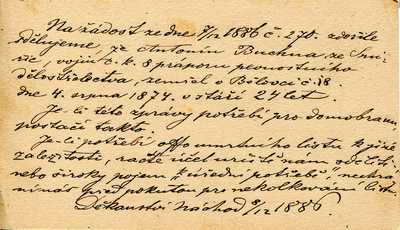 Na žádost ze dne 7/12 1886 č. 270. zdvořile
sdělujeme, že Antonín Buchna ze Smi-
řic, vojín c. k. 8 praporu pevnostního
dělostřelectva, zemřel v Bělovci č. 18.
dne 4. srpna 1874 v stáří 24 let.
Je-li této zprávy potřebí pro domobranu,
postačí takto.
Je-li potřebí offo úmrtního listu k jiné
záležitosti, račte účel určitě nám sděliti,
nebo široký pojem "úřední potřeba" nechrá-
ní nás před pokutou pro nekolkování listu.
Děkanství Náchod 8/12 1886.